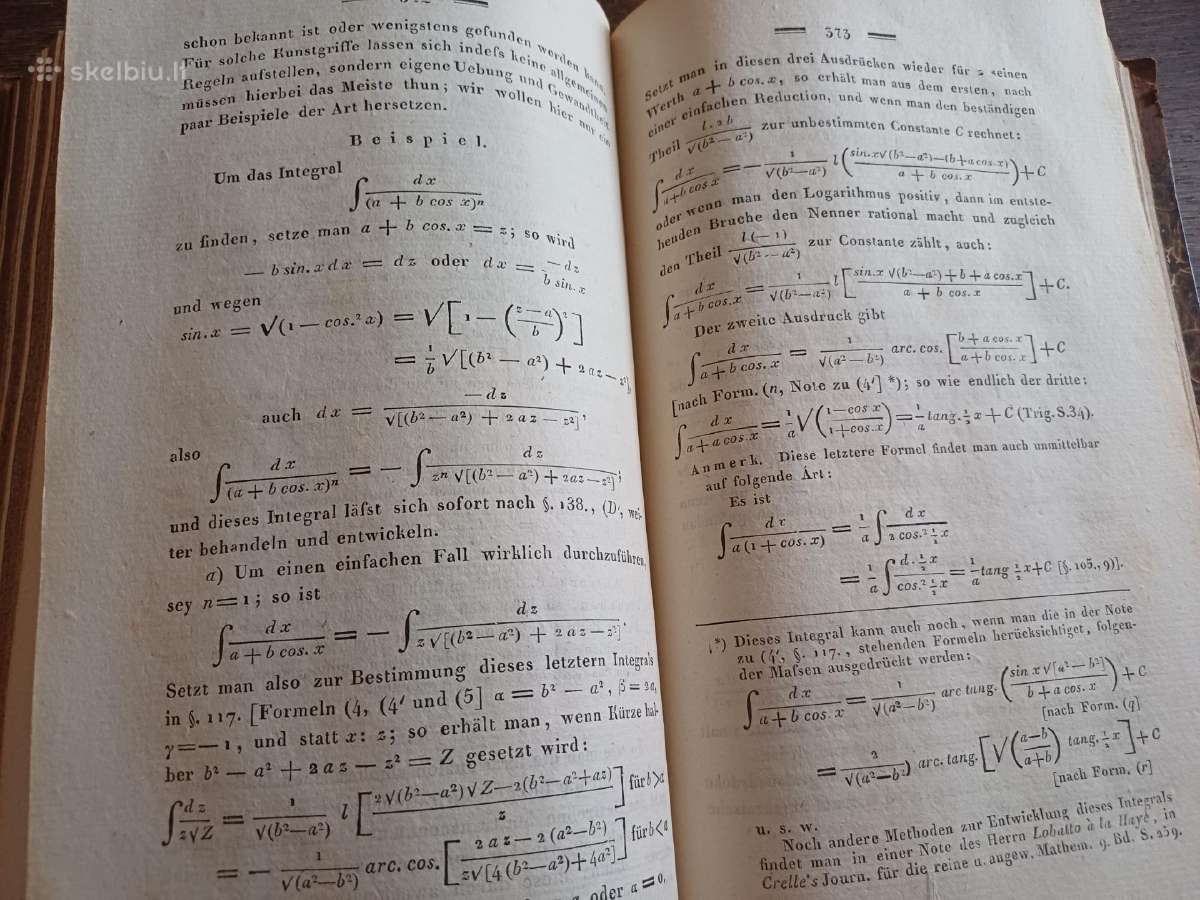 skelbiu.lt
schon bekannt ist oder wenigstens gefunden werden kann.
Für solche Kunstgriffe lassen sich indefs keine allgemeinen
Regeln aufstellen, sondern eigene Uebung und Gewandtheit
müssen hierbei das Meiste thun; wir wollen hier nur ein
paar Beispiele der Art hersetzen.
Beispiel.
Um das Integral
∫ dx/(a + b cos x)ⁿ
zu finden, setze man a + b cos. x = z; so wird
— b sin. x dx = dz oder dx = —dz/b sin. x
und wegen
sin. x = √(1 — cos.² x) = √[1 — ((z—a)/b)²]
= 1/b √[(b² — a²) + 2az — z²],
auch dx = —dz/√[(b² — a²) + 2az — z²],
also
∫ dx/(a + b cos. x)ⁿ = — ∫ dz/zⁿ √[(b² — a²) + 2az — z²];
und dieses Integral läfst sich sofort nach §. 138., (D', wei-
ter behandeln und entwickeln.
a) Um einen einfachen Fall wirklich durchzuführen,
sey n = 1; so ist
∫ dx/(a + b cos. x) = — ∫ dz/z√[(b² — a²) + 2az — z²].
Setzt man also zur Bestimmung dieses letztern Integrals
in §. 117. [Formeln (4, (4' und (5] α = b² — a², β = 2a,
γ = — 1, und statt x: z; so erhält man, wenn Kürze hal-
ber b² — a² + 2az — z² = Z gesetzt wird:
∫ dz/z√Z = 1/√(b²—a²) l [(2√(b²—a²)√Z—2(b²—a²+az))/z] für b>a
= — 1/√(a²—b²) arc. cos. [(2az—2(a²—b²))/z√[4(b²—a²)+4a²]] für b<a
oder a = 0,
373
Setzt man in diesen drei Ausdrücken wieder für z seinen
Werth a + b cos. x, so erhält man aus dem ersten, nach
einer einfachen Reduction, und wenn man den beständigen
Theil l. 2b/√(b² — a²) zur unbestimmten Constante C rechnet:
∫ dx/(a+b cos x) = — 1/√(b²—a²) l((sin. x√(b²—a²)—(b+a cos. x))/(a + b cos. x)) + C
oder wenn man den Logarithmus positiv, dann im entste-
henden Bruche den Nenner rational macht und zugleich
den Theil l(—1)/√(b² — a²) zur Constante zählt, auch:
∫ dx/(a+b cos. x) = 1/√(b²—a²) l[(sin. x √(b²—a²)+b+a cos. x)/(a + b cos. x)] + C.
Der zweite Ausdruck gibt
∫ dx/(a + b cos. x) = 1/√(a²—b²) arc. cos. [(b + a cos. x)/(a + b cos. x)] + C
[nach Form. (n, Note zu (4'] *); so wie endlich der dritte:
∫ dx/(a+a cos. x) = 1/a √((1—cos x)/(1+cos. x)) = 1/a tang. ½ x + C (Trig. S.34).
Anmerk. Diese letztere Formel findet man auch unmittelbar
auf folgende Art:
Es ist
∫ dx/a(1 + cos. x) = 1/a ∫ dx/2 cos.² ½ x
= 1/a ∫ d. ½ x/cos.² ½ x = 1/a tang ½ x+C [§. 105., 9)].
*) Dieses Integral kann auch noch, wenn man die in der Note
zu (4', §. 117., stehenden Formeln berücksichtiget, folgen-
der Mafsen ausgedrückt werden:
∫ dx/(a + b cos. x) = 1/√(a²—b²) arc tang. (sin x √[a²—b²]/(b + a cos. x)) + C
[nach Form. (q]
= 2/√(a²—b²) arc. tang. [√((a—b)/(a+b)) tang. ½ x] + C
[nach Form. (r]
u. s. w.
Noch andere Methoden zur Entwicklung dieses Integrals
findet man in einer Note des Herrn Lobatto à la Haye, in
Crelle's Journ. für die reine u. angew. Mathem. 9. Bd. S. 259.